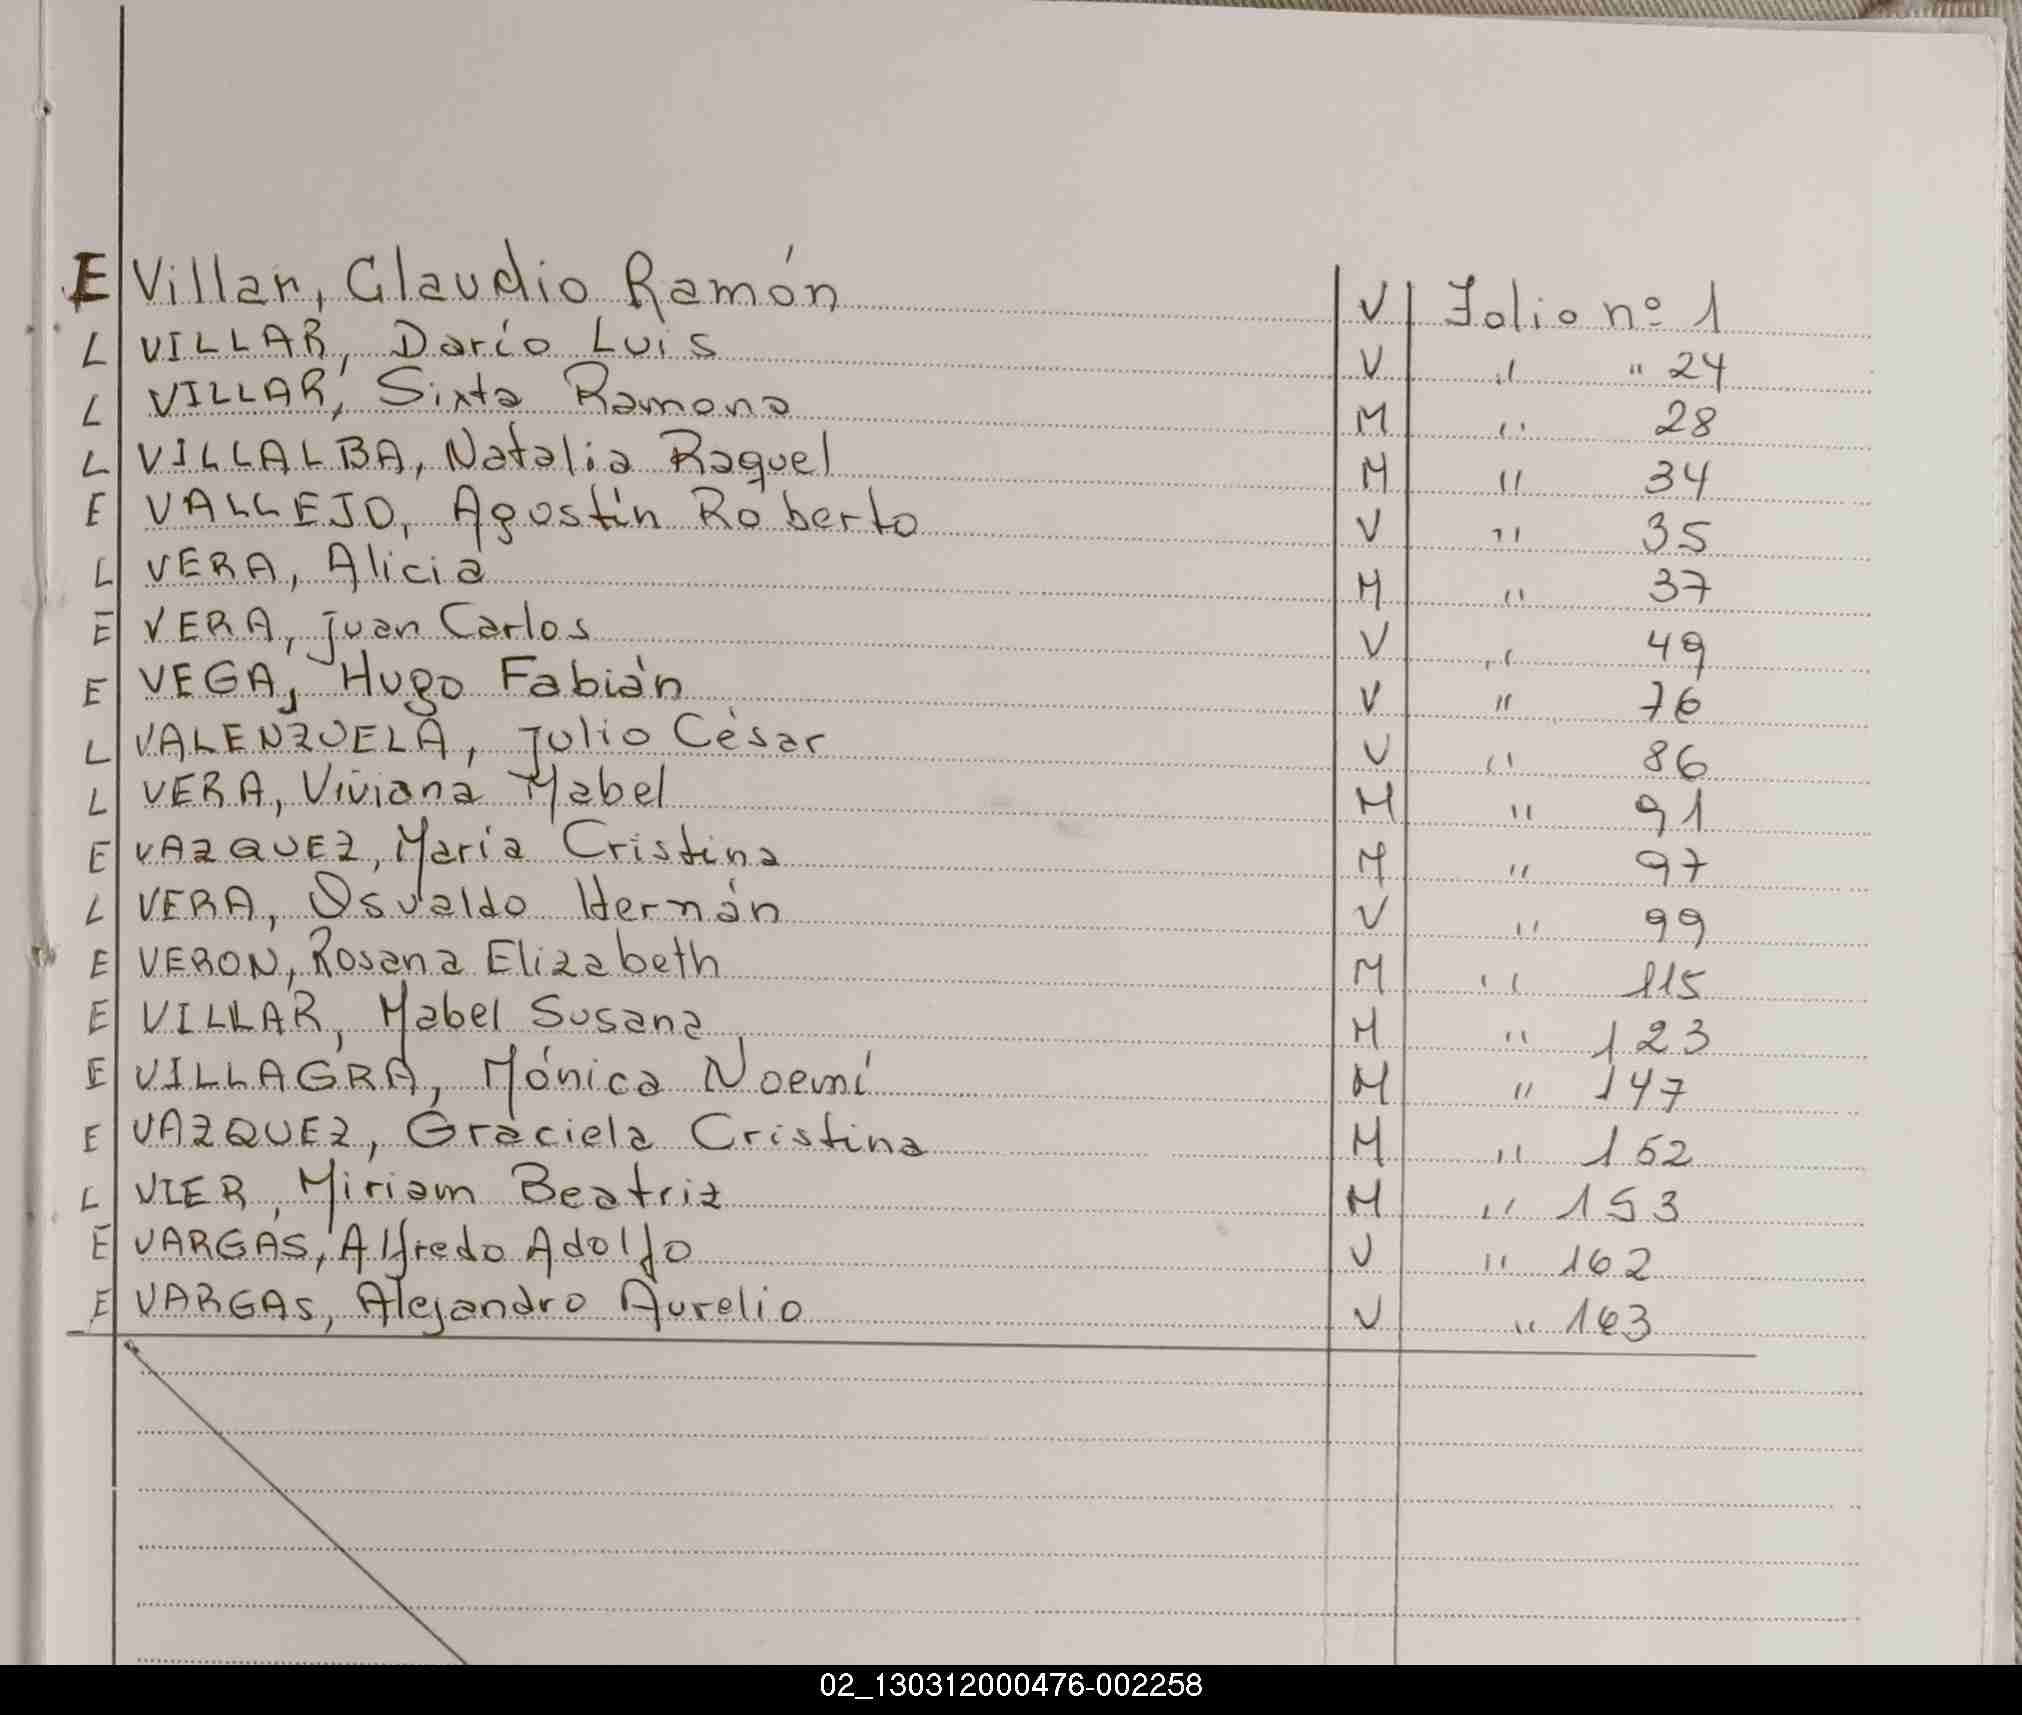 E Villar, Claudio Ramón V Folio nº 1
L VILLAR, Darío Luis V " " 24
L VILLAR, Sixta Ramona M " 28
L VILLALBA, Natalia Raquel M " 34
E VALLEJO, Agustín Roberto V " 35
L VERA, Alicia M " 37
E VERA, Juan Carlos V " 49
E VEGA, Hugo Fabián V " 76
L VALENZUELA, Julio César V " 86
L VERA, Viviana Mabel M " 91
E VAZQUEZ, María Cristina M " 97
L VERA, Osvaldo Hernán V " 99
E VERON, Rosana Elizabeth M " 115
E VILLAR, Mabel Susana M " 123
E VILLAGRA, Mónica Noemí M " 147
E VAZQUEZ, Graciela Cristina M " 152
L VIER, Miriam Beatriz M " 153
E VARGAS, Alfredo Adolfo V " 162
E VARGAS, Alejandro Aurelio V " 163
02_130312000476-002258